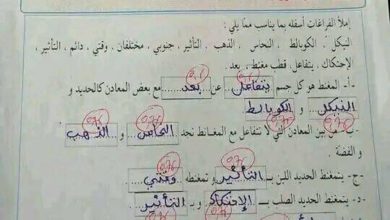 إملأ الفراغات أسفله بما يناسب مما يلي :
النيكل . الكوبالط . النحاس . الذهب . التأثير . جنوبي . مختلفان . وقتي . دائم . التأثير .
الإحتكاك . يتفاعل . قطب مغنط . بعد .
-أ- المغنط هو كل جسم يتفاعل عن بعد مع بعض المعادن كالحديد و
النيكل و الكوبالط
-ب- من بين المعادن التي لا تتفاعل مع المغانط نجد النحاس و الذهب
و الفضة
-ج- يتمغنط الحديد اللين بـ التأثير و تمغنطه وقتي
-د- يتمغنط الحديد الصلب بـ الإحتكاك و التأثير